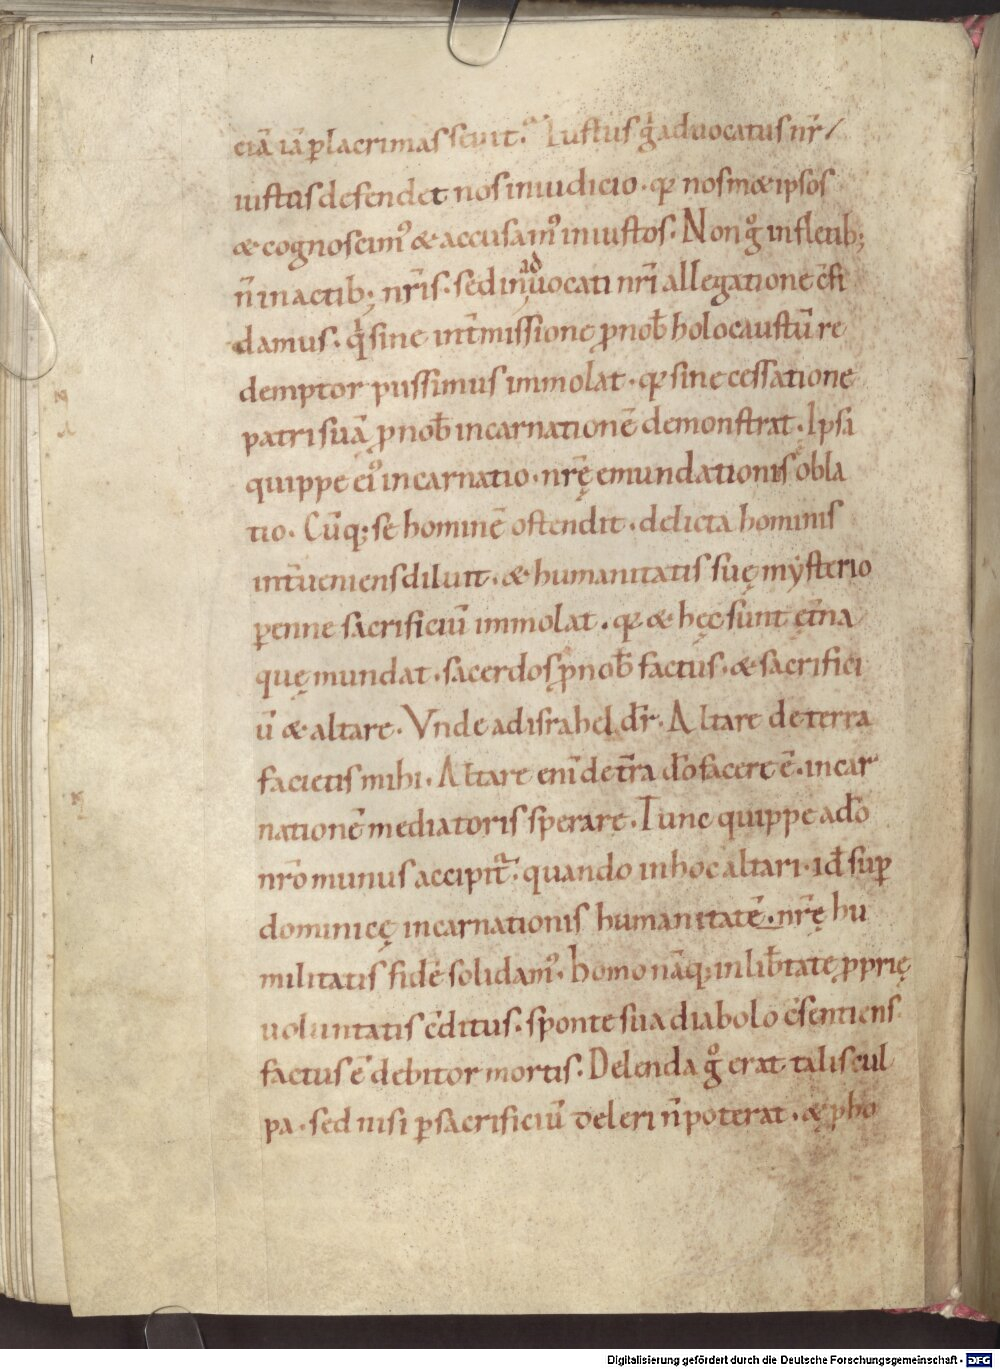 ciā iā ꝑ lacrimas sevit. Iustus g̊ advocatus nr̄
iustus defendet nos in iudicio. qꝛ nosmet ipsos
& cognoscim᷒ & accusam᷒ iniustos. Non g̊ in fletib;
n̄ in actib; nr̄is. sed in advocati nr̄i allegatione c̄fi
damus. q̇ sine int̄missione ꝓ nob̄ holocaustū re
demptor piissimus immolat. qꝛ sine cessatione
patri suā ꝓ nob̄ incarnationē demonstrat. Ipsa
quippe ei᷒ incarnatio. nr̄ę emundationis obla
tio. Cūq; se hominē ostendit. delicta hominis
int̄veniens diluit. & humanitatis suę mẏsterio
ꝑenne sacrificiū immolat. qꝛ & hęc sunt ęt̄na
quę mundat. sacerdos ꝓ nob̄ factus. & sacrifici
ū & altare. Vnde ad israhel dr̄. Altare de terra
facietis mihi. Altare enī de t̄ra d̄o facere ē. incar
nationē mediatoris sperare. Tunc quippe a d̄o
nr̄o munus accipit᷑. quando in hoc altari. id̄ suꝑ
dominicę incarnationis humanitatē. nr̄ę hu
militatis fidē solidam᷒. homo nāq; in lib̄tate ꝓprię
voluntatis c̄ditus. sponte sua diabolo c̄sentiens.
factus ē debitor mortis. Delenda g̊ erat talis cul
pa. sed nisi ꝑ sacrificiū deleri n̄ poterat. & ꝑ ho
Digitalisierung gefördert durch die Deutsche Forschungsgemeinschaft - DFG